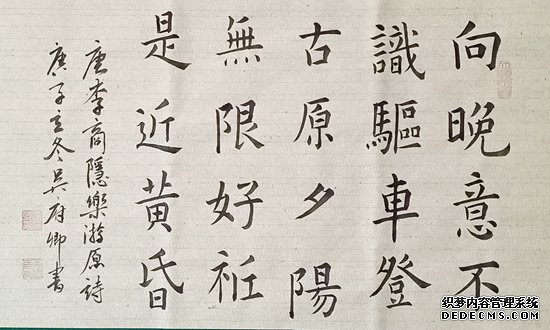 向晚意不
識驅車登
古原夕陽
無限好祇
是近黃昏
唐李商隱樂游原詩
庚子立冬吳府卿書
织梦内容管理系统
DEDECMS.COM